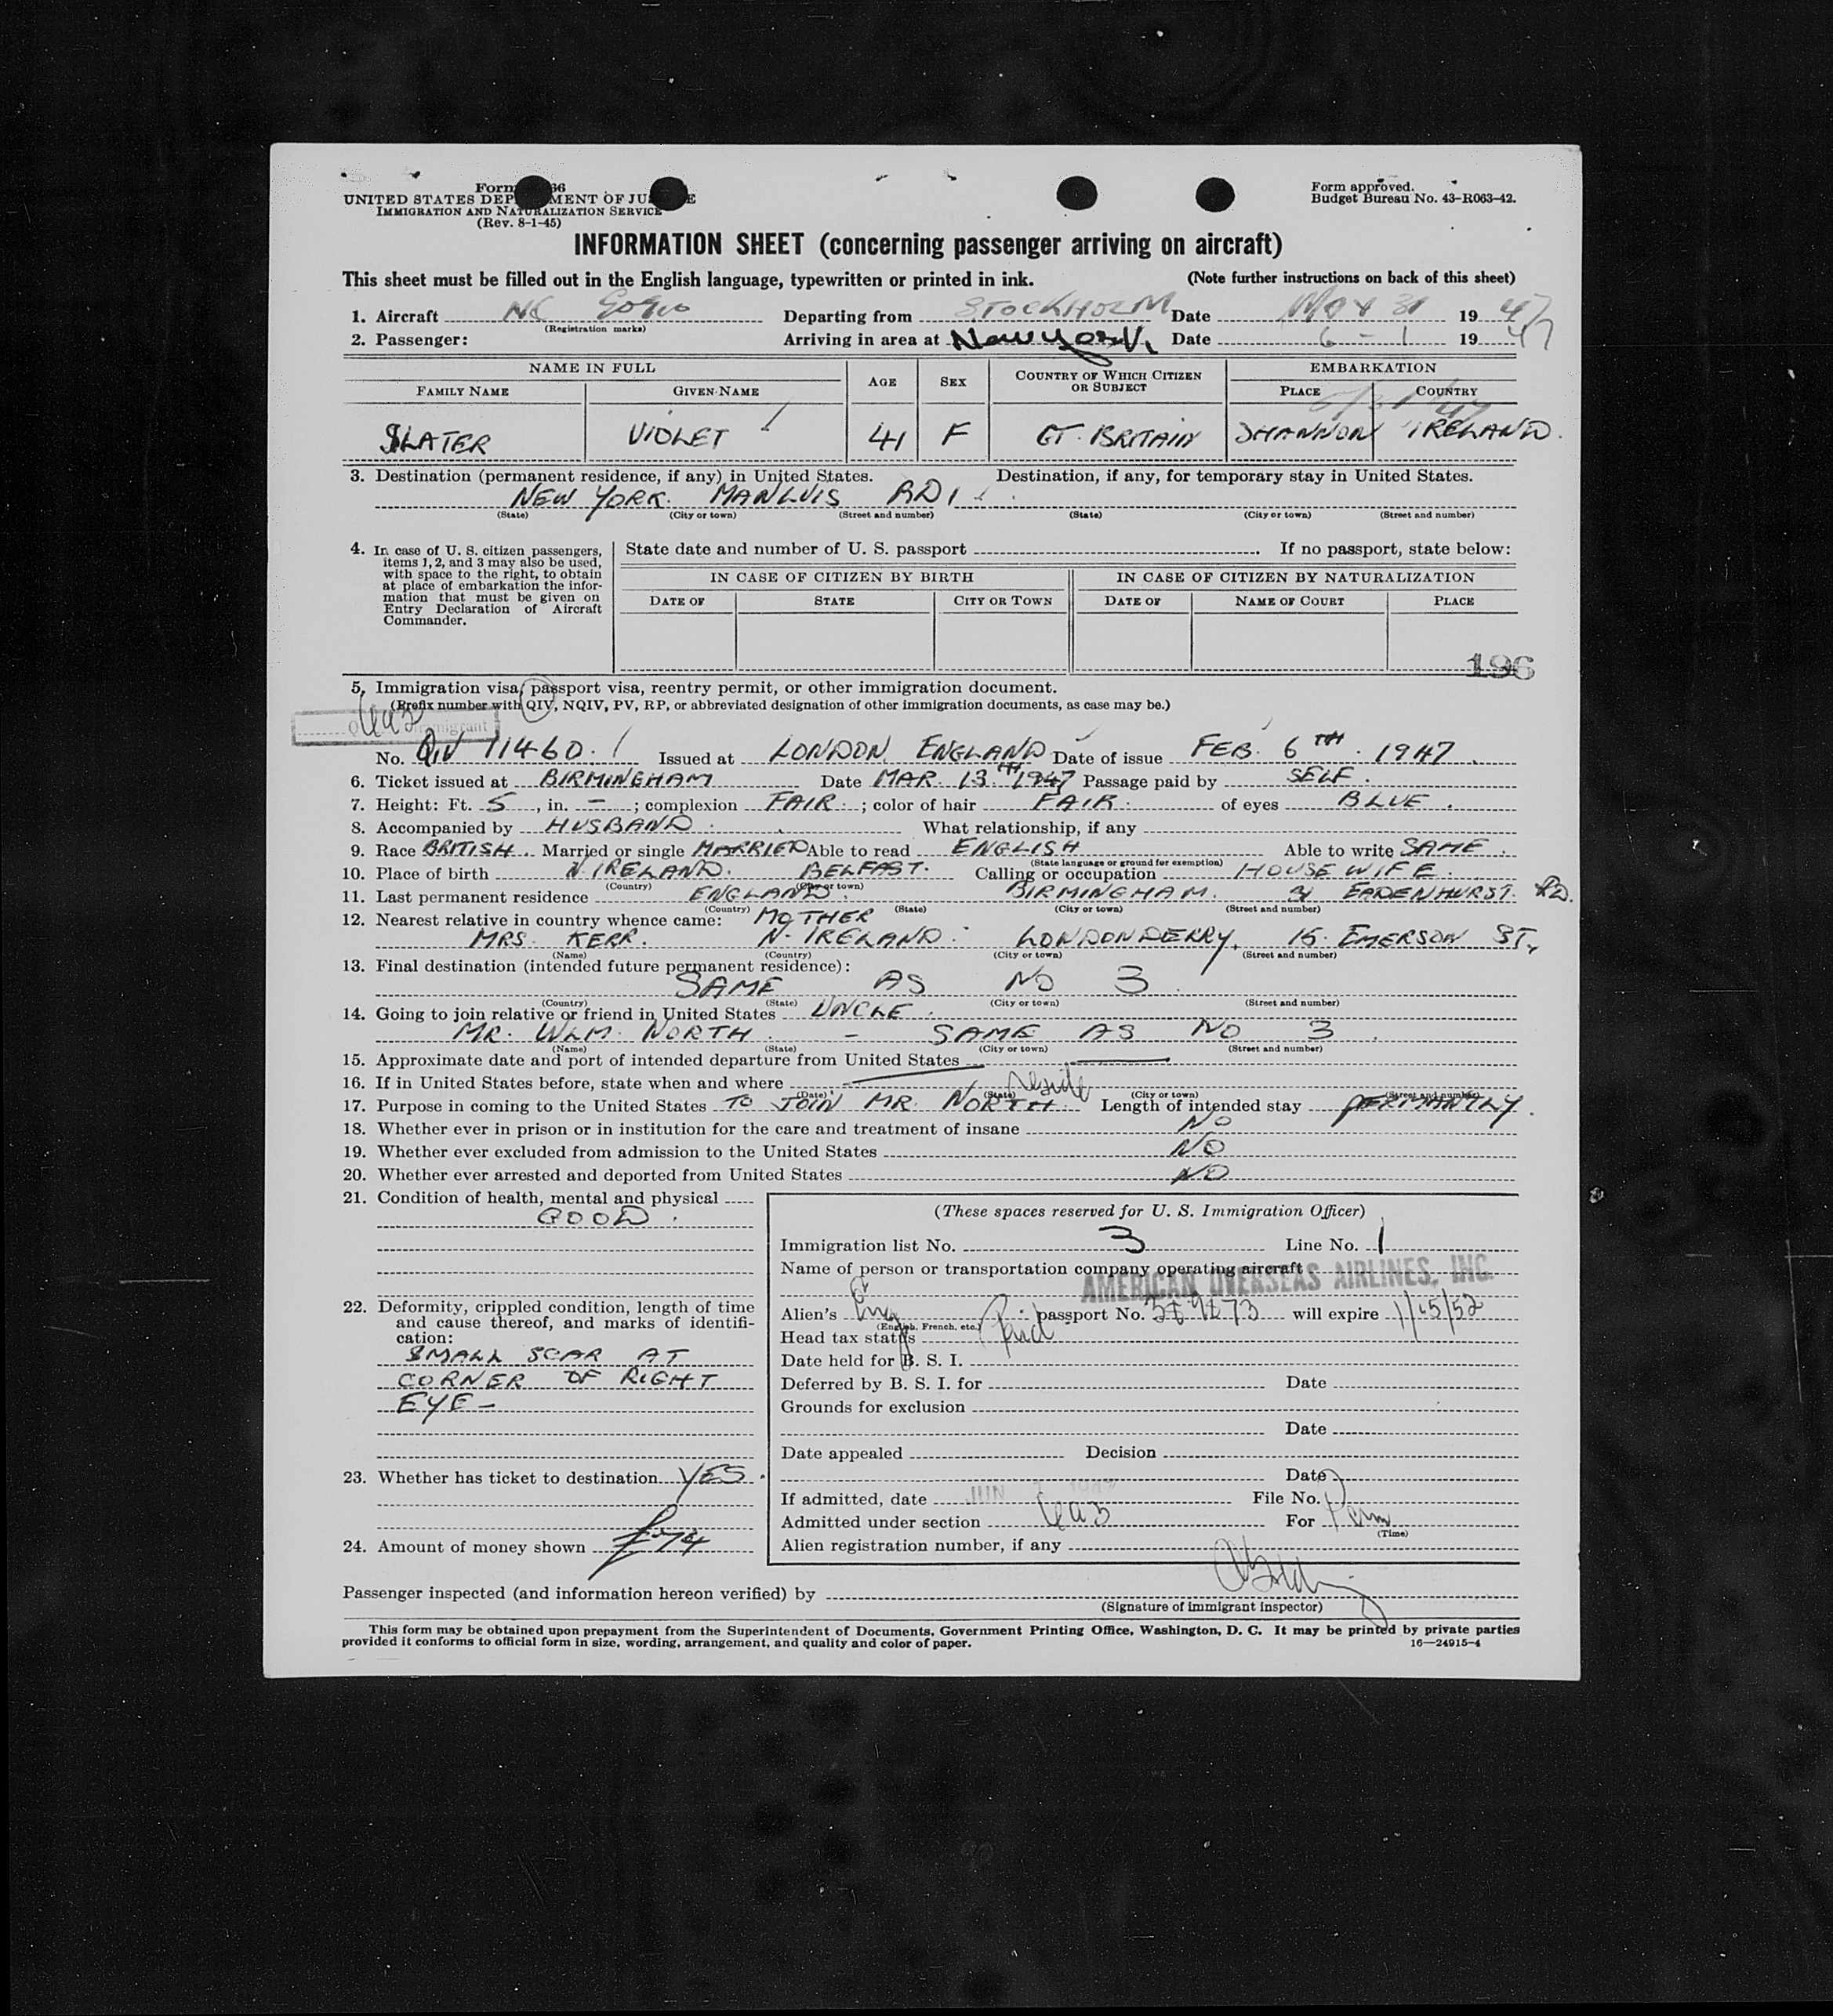 Form 66
UNITED STATES DEP MENT OF JU E
IMMIGRATION AND NATURALIZATION SERVICE
(Rev. 8-1-45)
Form approved.
Budget Bureau No. 43-R063-42.
INFORMATION SHEET (concerning passenger arriving on aircraft)
This sheet must be filled out in the English language, typewritten or printed in ink. (Note further instructions on back of this sheet)
1. Aircraft NC Departing from STOCKHOLM Date May 31 1947
(Registration marks)
2. Passenger: Arriving in area at New York, Date 6-1 1947
NAME IN FULL AGE SEX COUNTRY OF WHICH CITIZEN OR SUBJECT EMBARKATION
FAMILY NAME GIVEN NAME PLACE COUNTRY
SLATER VIOLET 41 F GT. BRITAIN SHANNON IRELAND.
3. Destination (permanent residence, if any) in United States. Destination, if any, for temporary stay in United States.
NEW YORK. MANLVIS RD 1
(State) (City or town) (Street and number) (State) (City or town) (Street and number)
4. In case of U. S. citizen passengers, items 1, 2, and 3 may also be used, with space to the right, to obtain at place of embarkation the information that must be given on Entry Declaration of Aircraft Commander.
State date and number of U. S. passport . If no passport, state below:
IN CASE OF CITIZEN BY BIRTH IN CASE OF CITIZEN BY NATURALIZATION
DATE OF STATE CITY OR TOWN DATE OF NAME OF COURT PLACE
196
5. Immigration visa, passport visa, reentry permit, or other immigration document.
(Prefix number with QIV, NQIV, PV, RP, or abbreviated designation of other immigration documents, as case may be.)
No. QIV 11460. Issued at LONDON, ENGLAND Date of issue FEB. 6TH. 1947
6. Ticket issued at BIRMINGHAM Date MAR. 13.TH 1947 Passage paid by SELF.
7. Height: Ft. 5, in. –; complexion FAIR.; color of hair FAIR. of eyes BLUE.
8. Accompanied by HUSBAND. What relationship, if any
9. Race BRITISH. Married or single MARRIED Able to read ENGLISH Able to write SAME.
(State language or ground for exemption)
10. Place of birth N. IRELAND. BELFAST. Calling or occupation HOUSE WIFE.
(Country) (City or town)
11. Last permanent residence ENGLAND. BIRMINGHAM. 31 EADENHURST. RD.
(Country) (State) (City or town) (Street and number)
12. Nearest relative in country whence came: MOTHER
MRS. KERR. N. IRELAND. LONDONDERRY, 16. EMERSON ST,
(Name) (Country) (City or town) (Street and number)
13. Final destination (intended future permanent residence):
SAME AS NO 3.
(Country) (State) (City or town) (Street and number)
14. Going to join relative or friend in United States UNCLE.
MR. WLM. NORTH. – SAME AS NO 3.
(Name) (State) (City or town) (Street and number)
15. Approximate date and port of intended departure from United States
16. If in United States before, state when and where
(Date) (State) (City or town) (Street and number)
17. Purpose in coming to the United States TO JOIN MR. NORTH. Length of intended stay PERMANTLY.
18. Whether ever in prison or in institution for the care and treatment of insane NO
19. Whether ever excluded from admission to the United States NO
20. Whether ever arrested and deported from United States NO
21. Condition of health, mental and physical
GOOD.
22. Deformity, crippled condition, length of time and cause thereof, and marks of identification:
SMALL SCAR AT
CORNER OF RIGHT
EYE –
23. Whether has ticket to destination YES.
24. Amount of money shown £74
(These spaces reserved for U. S. Immigration Officer)
Immigration list No. 3 Line No. 1
Name of person or transportation company operating aircraft
AMERICAN OVERSEAS AIRLINES, INC.
Alien's Eng passport No. will expire 1/15/52
(English, French, etc.)
Head tax status Paid
Date held for B. S. I.
Deferred by B. S. I. for Date
Grounds for exclusion
Date
Date appealed Decision
Date
If admitted, date JUN 1 1947 File No.
Admitted under section 4a3 For Perm
(Time)
Alien registration number, if any
Passenger inspected (and information hereon verified) by
(Signature of immigrant inspector)
This form may be obtained upon prepayment from the Superintendent of Documents, Government Printing Office, Washington, D. C. It may be printed by private parties
provided it conforms to official form in size, wording, arrangement, and quality and color of paper. 16—24915-4